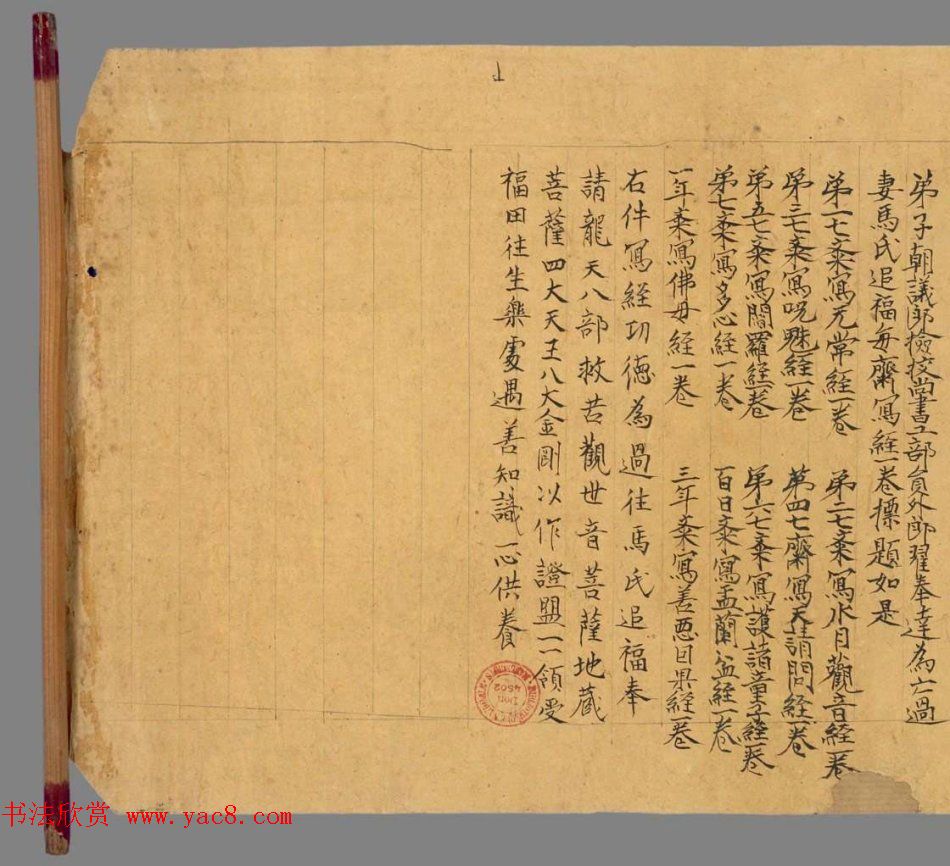 弟子朝議郎檢挍尚書工部員外郎翟奉達為亡過
妻馬氏追福每齋寫經一卷摽題如是
弟一七齋寫无常經一卷 弟二七齋寫水月觀音經一卷
第三七齋寫呪魅經一卷 第四七齋寫天請問經一卷
第五七齋寫閻羅經一卷 第六七齋寫護諸童子經一卷
第七齋寫多心經一卷 百日齋寫盂蘭盆經一卷
一年齋寫佛母經一卷 三年齋寫善惡因果經一卷
右件寫經功德為過往馬氏追福奉
請龍天八部救苦觀世音菩薩地藏
菩薩四大天王八大金剛以作證盟一一領受
福田往生樂處遇善知識一心供養
上
4502
书法欣赏 www.yac8.com